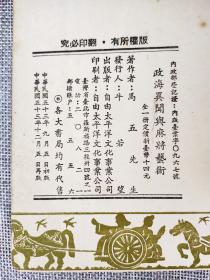 版權所有・翻印必究
內政部登記證：內版臺業字〇九六七號
政海異聞與麻將藝術
全一冊定價新臺幣十四元
著作者：馬五先生
發行人：斗若望
出版者：自由太平洋文化事業公司
印刷者：自由太平洋文化事業公司
臺灣省臺北市羅斯福路三段
電話：二五
郵撥帳戶
各大書局均有代售
中華民國五十三年九月五日初版
中華民國五十三年十二月五日再版